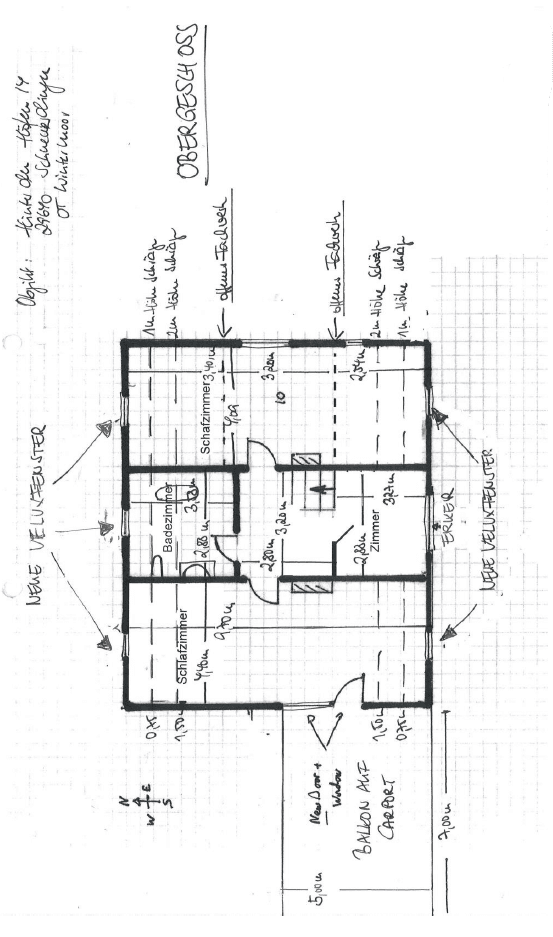 Objekt: Hinter den Höfen 14
29640 Schneverdingen
OT Wintermoor
OBERGESCHOSS
1m Höhe Schräge
2m Höhe Schräge
offenes Fachwerk
offenes Fachwerk
2m Höhe Schräge
1m Höhe Schräge
NEUE VELUXFENSTER
Schlafzimmer
3,40m
4,02
3,20m
10
2,54m
Badezimmer
2,88m
3,20m
2,80m
Zimmer
2,88m
3,27m
ERKER
NEUE VELUXFENSTER
Schlafzimmer
4,40m
9,70m
0,75
1,50m
1,50m
0,75m
N
W E
S
New Door +
Window
BALKON AUF
CARPORT
5,00m
7,00m